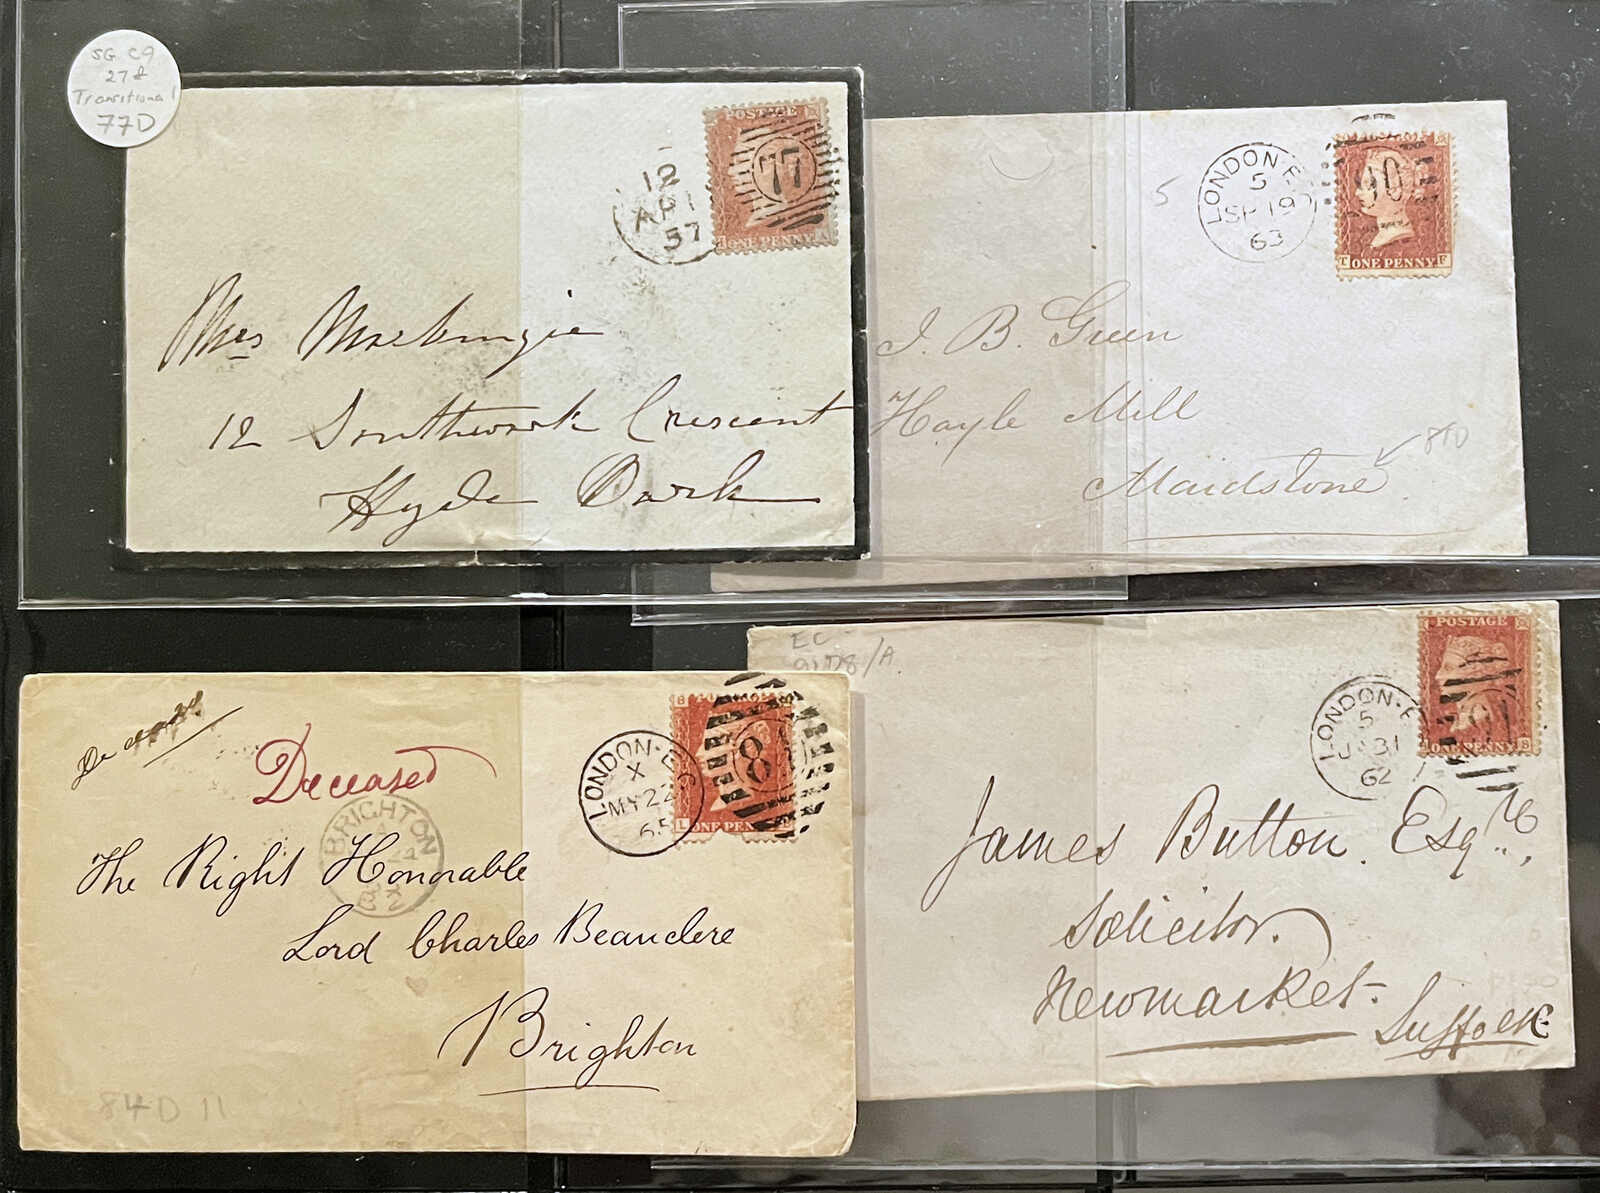 SG C9
27 &
Transitional
77D
POSTAGE
77
ONE PENNY
12
AP 1
57
Mrs Mackenzie
12 Southwark Crescent
Hyde Park
LONDON-E
5
SP 19
63
90
T ONE PENNY F
5
J. B. Green
Hayle Mill
Maidstone
Deceased
Deceased
BRIGHTON
LONDON-E C
X
MY 22
65
8
B
L ONE PEN
The Right Honorable
Lord Charles Beauclere
Brighton
84D 11
EC
91D8/A.
POSTAGE
ONE PENNY
LONDON-E
5
JA 31
62
91
James Button Esqre,
Solicitor.
Newmarket.
Suffolk